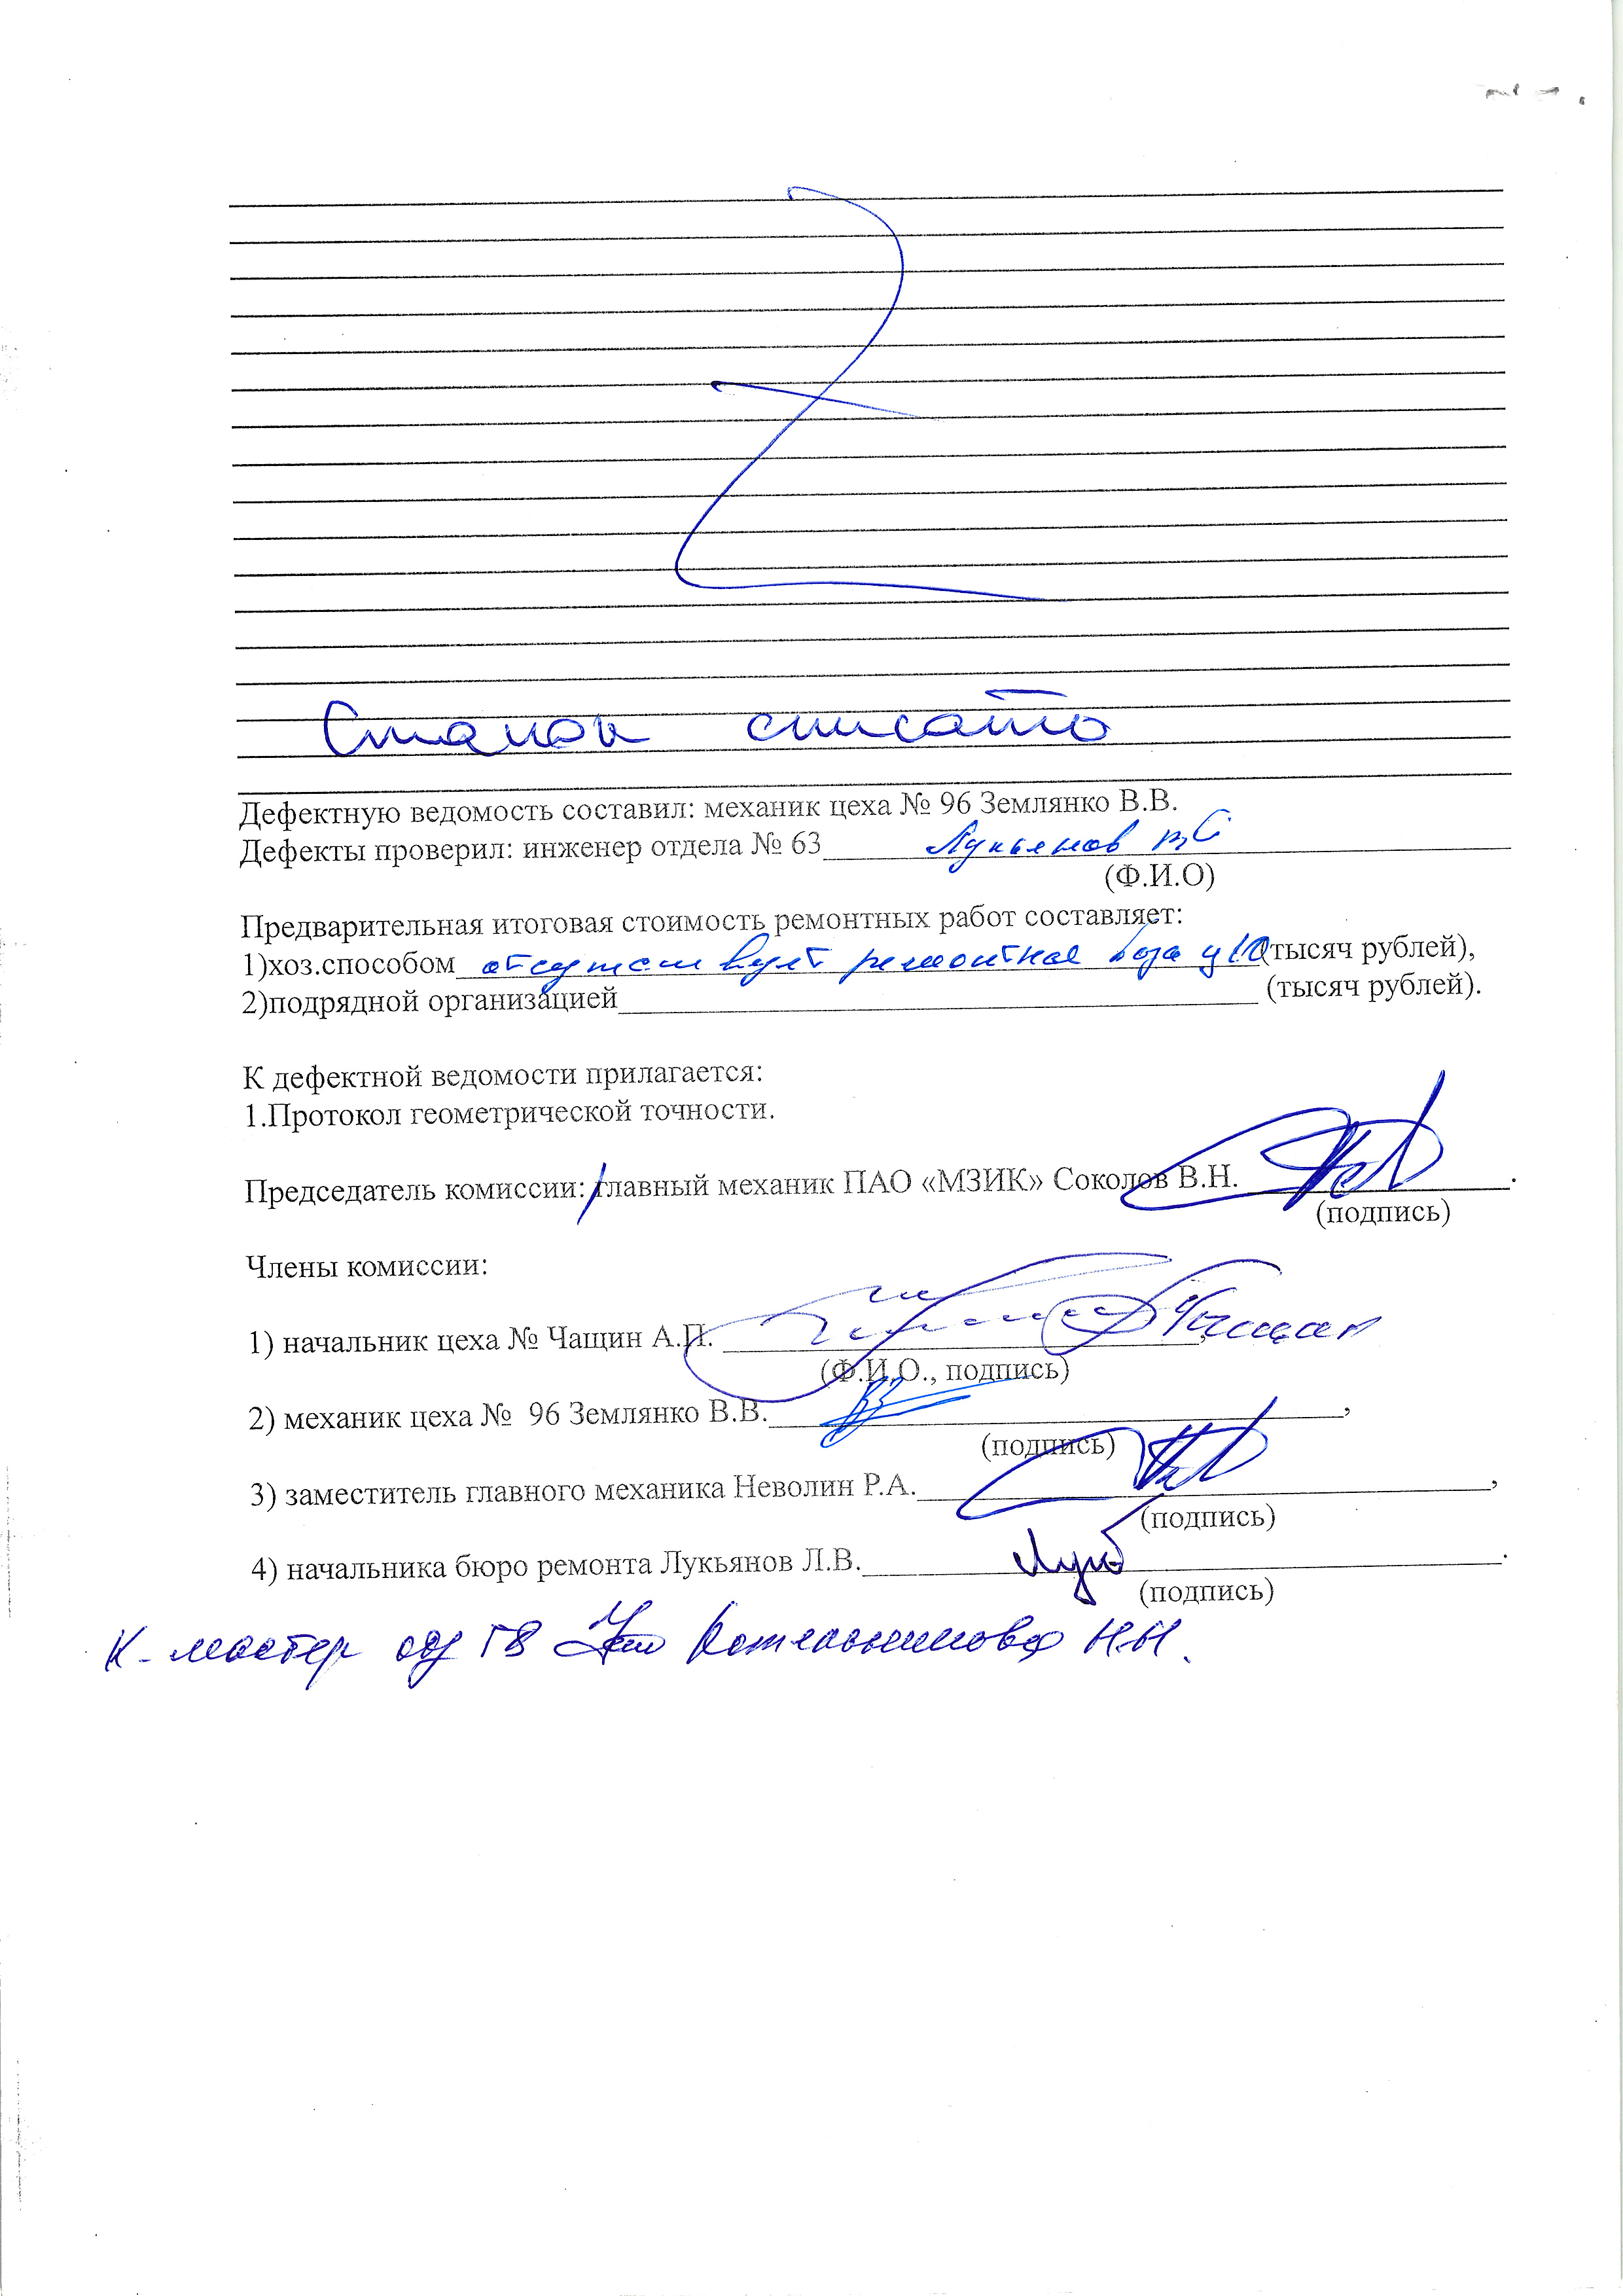 Станок списать
Дефектную ведомость составил: механик цеха № 96 Землянко В.В.
Дефекты проверил: инженер отдела № 63 Лукьянов
(Ф.И.О)
Предварительная итоговая стоимость ремонтных работ составляет:
1)хоз.способом отсутствует ремонтная база (тысяч рублей),
2)подрядной организацией (тысяч рублей).
К дефектной ведомости прилагается:
1.Протокол геометрической точности.
Председатель комиссии: главный механик ПАО «МЗИК» Соколов В.Н.
(подпись)
Члены комиссии:
1) начальник цеха № Чащин А.П. Чащин
(Ф.И.О., подпись)
2) механик цеха № 96 Землянко В.В.
(подпись)
3) заместитель главного механика Неволин Р.А.
(подпись)
4) начальника бюро ремонта Лукьянов Л.В.
(подпись)
К. мастер Котельникова Н.Н.